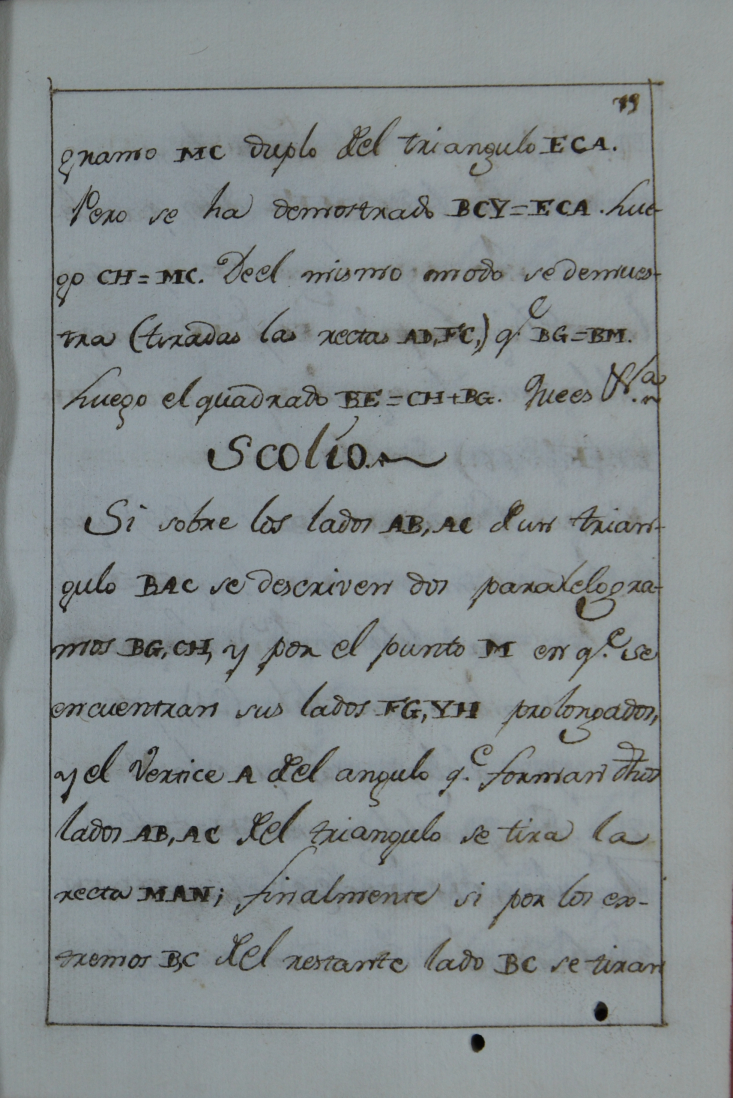 79
gramo MC duplo del triangulo ECA.
Pero se ha demostrado BCY=ECA. Lue-
go CH=MC. Deel mismo modo se demues-
tra (tiradas las rectas AD, FC,) q.e BG=BM.
Luego el quadrado BE=CH+BG. Que es &.a
Scolio.
Si sobre los lados AB, AC de un trian-
gulo BAC se descriven dos paralelogra-
mos BG, CH, y por el punto M en q.e se
encuentran sus lados FG, YH prolongados,
y el Vertice A del angulo q.e forman dhos
lados AB, AC del triangulo se tira la
recta MAN; finalmente si por los ex-
tremos B,C del restante lado BC se tiran